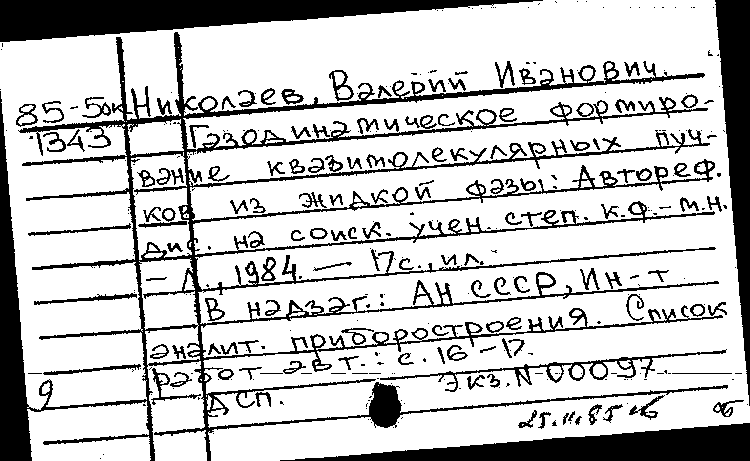 85-5ок Николаев, Валерий Иванович.
1343 Газодинамическое формиро-
вание квазимолекулярных пуч-
ков из жидкой фазы: Автореф.
дис. на соиск. учен. степ. к.ф.-м.н.
- Л., 1984. — 17с., ил.
В надзаг.: АН СССР, Ин-т
аналит. приборостроения. Список
работ авт.: с. 16-17.
9 ДСП. Экз. N 00097.
25.11.85